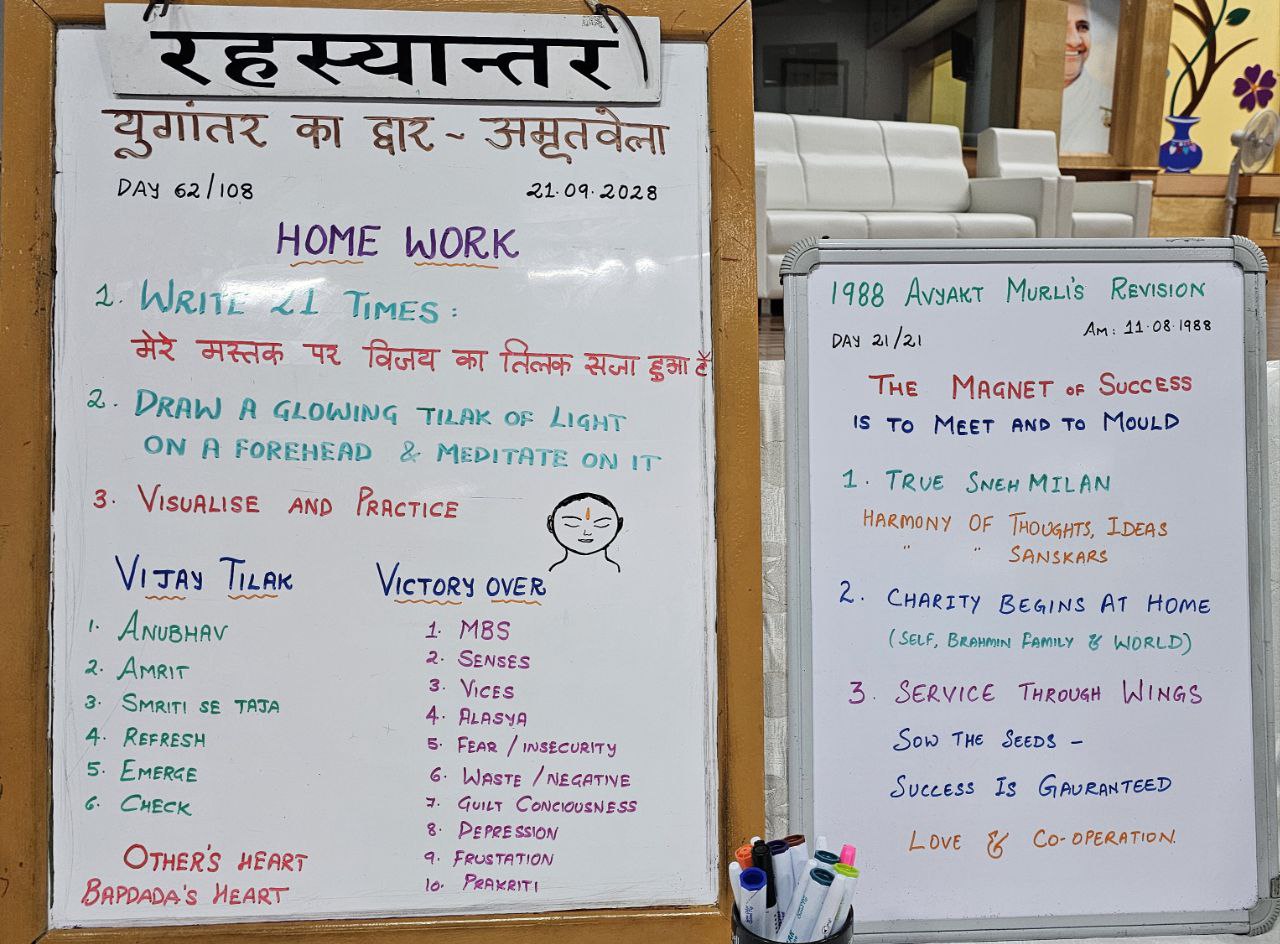 रहस्यान्तर
युगांतर का द्वार - अमृतवेला
DAY 62/108 21.09.2028
HOME WORK
1. WRITE 21 TIMES:
मेरे मस्तक पर विजय का तिलक सजा हुआ है
2. DRAW A GLOWING TILAK OF LIGHT
ON A FOREHEAD & MEDITATE ON IT
3. VISUALISE AND PRACTICE
VIJAY TILAK
1. ANUBHAV
2. AMRIT
3. SMRITI SE TAJA
4. REFRESH
5. EMERGE
6. CHECK
OTHER'S HEART
BAPDADA'S HEART
VICTORY OVER
1. MBS
2. SENSES
3. VICES
4. ALASYA
5. FEAR / INSECURITY
6. WASTE / NEGATIVE
7. GUILT CONCIOUSNESS
8. DEPRESSION
9. FRUSTATION
10. PRAKRITI
1988 AVYAKT MURLI'S REVISION
DAY 21/21 AM: 11.08.1988
THE MAGNET OF SUCCESS
IS TO MEET AND TO MOULD
1. TRUE SNEH MILAN
HARMONY OF THOUGHTS, IDEAS
" " SANSKARS
2. CHARITY BEGINS AT HOME
(SELF, BRAHMIN FAMILY & WORLD)
3. SERVICE THROUGH WINGS
SOW THE SEEDS -
SUCCESS IS GAURANTEED
LOVE & CO-OPERATION.